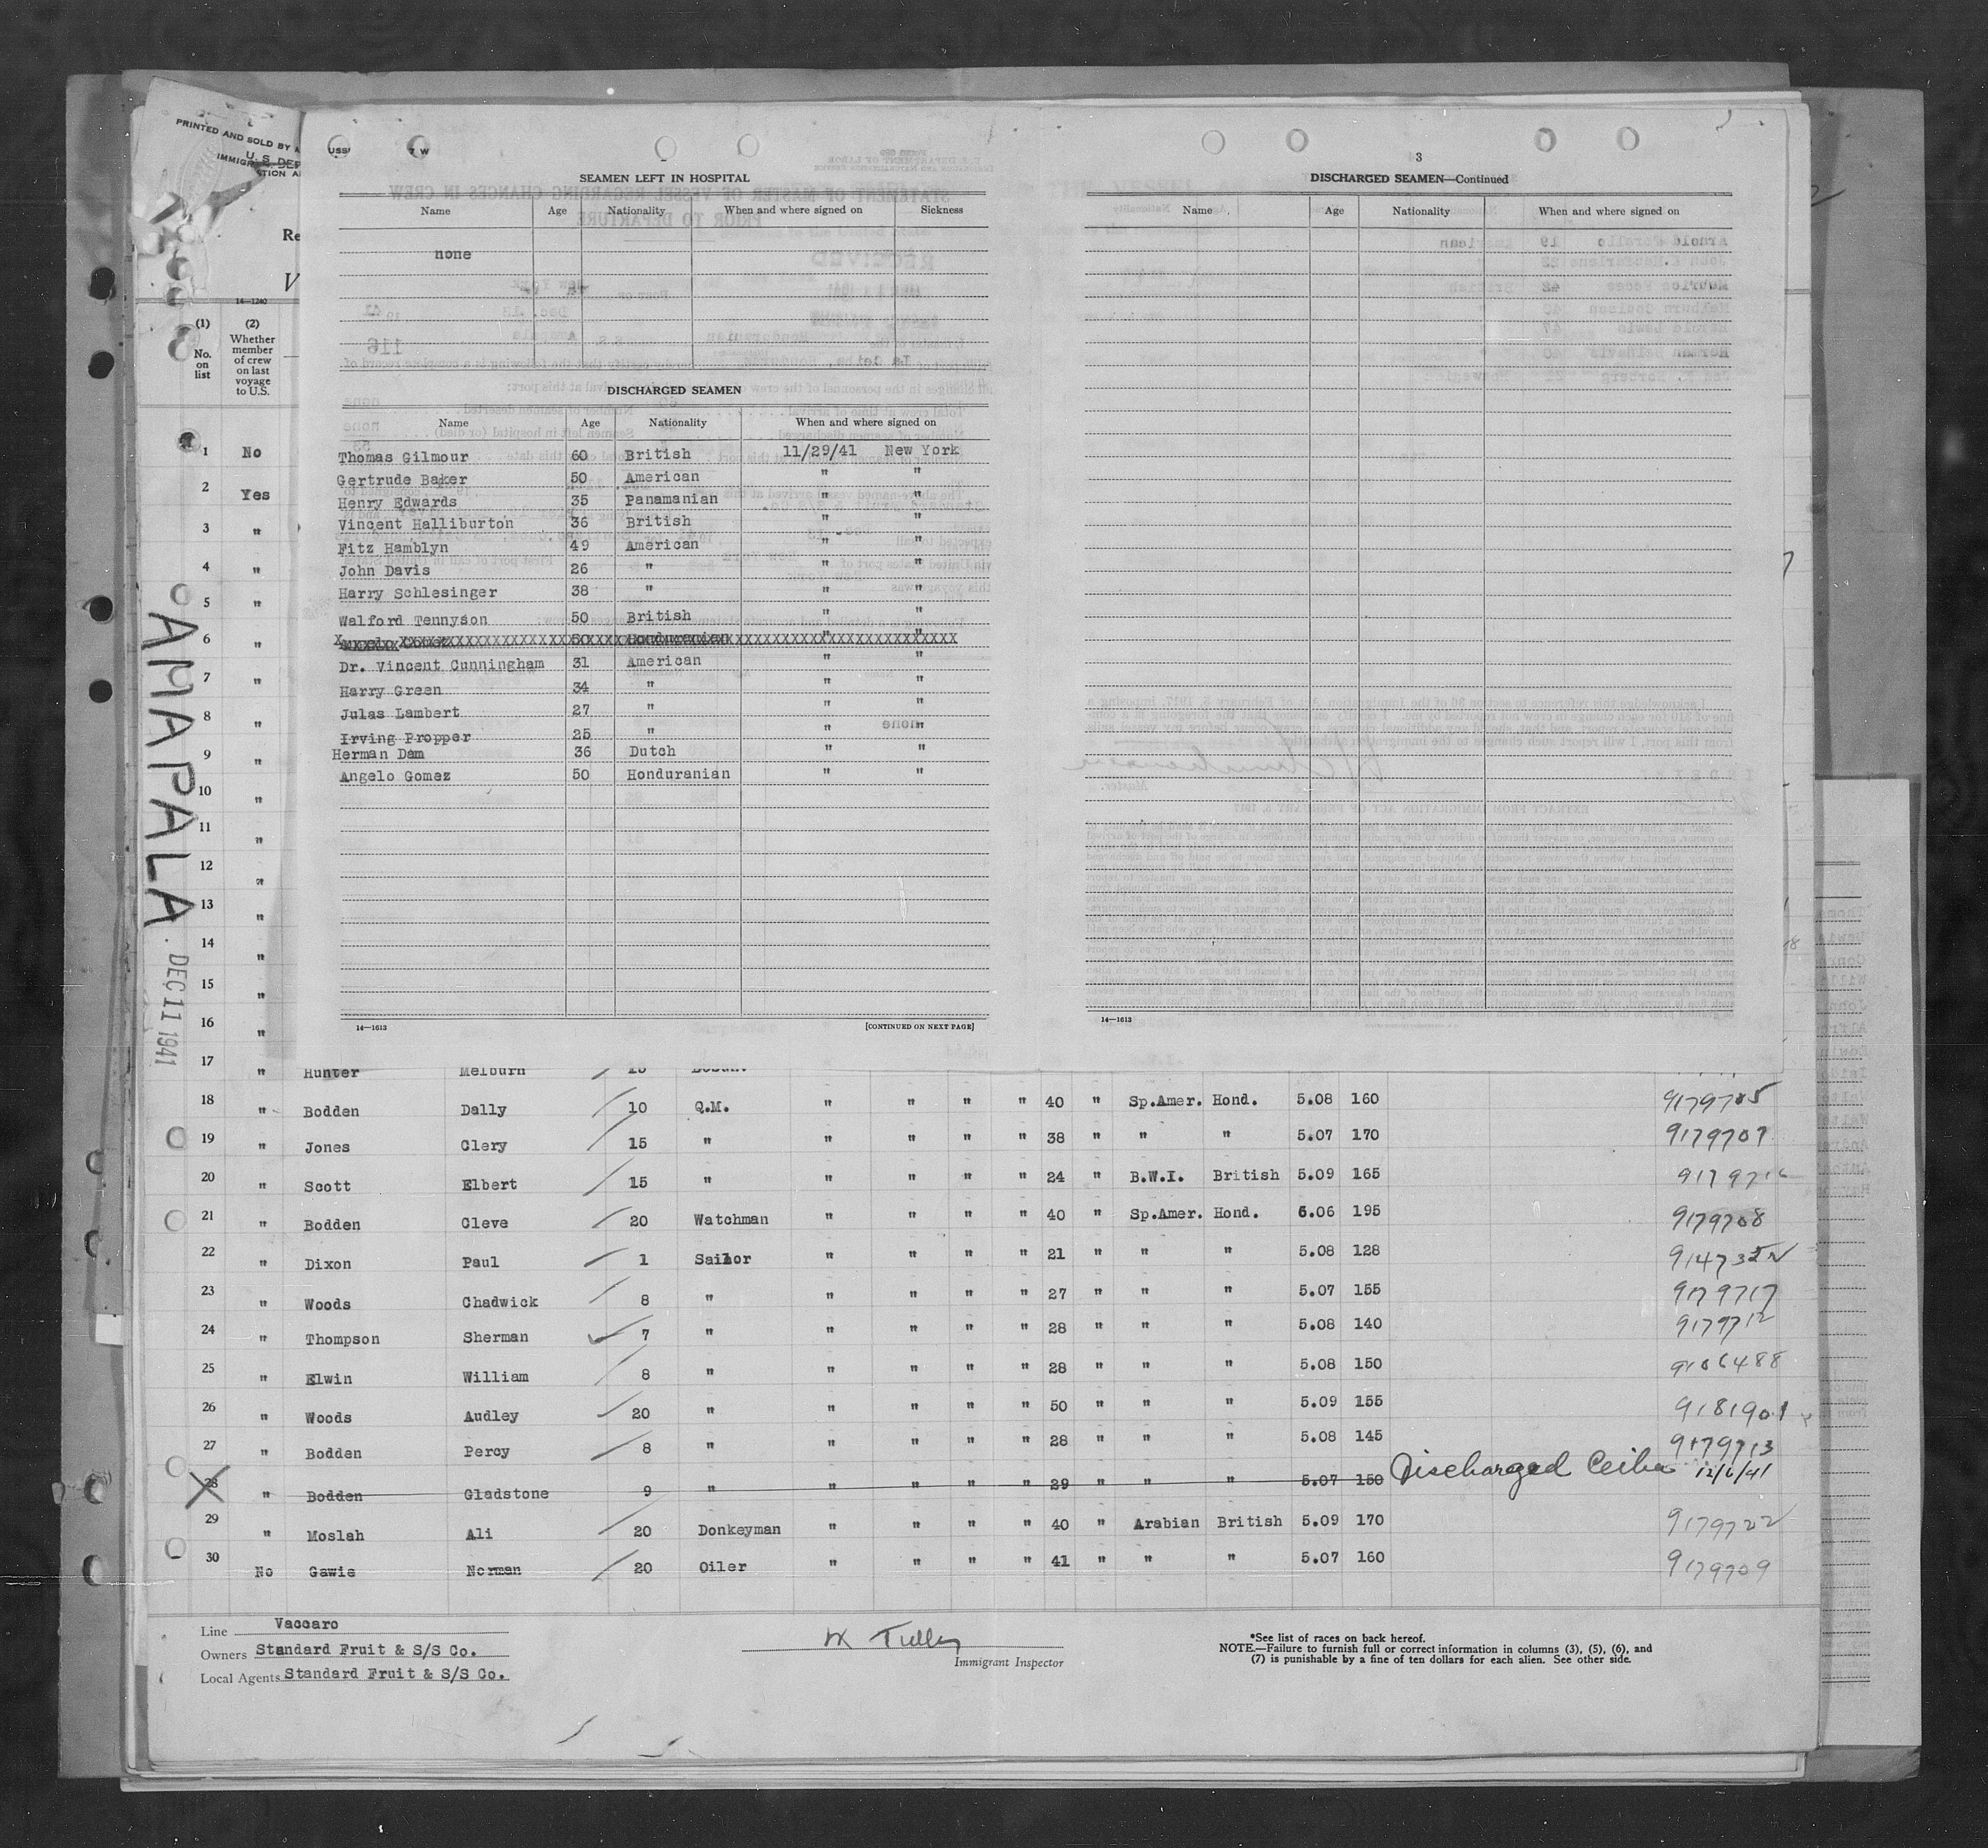 PRINTED AND SOLD BY
U. S. DEP
IMMIGR
TION A
Re
V
14—1240
(1) No. on list
(2) Whether member of crew on last voyage to U.S.
AMAPALA
DEC 11 1941
SEAMEN LEFT IN HOSPITAL
Name Age Nationality When and where signed on Sickness
none
DISCHARGED SEAMEN
Name Age Nationality When and where signed on
Thomas Gilmour 60 British 11/29/41 New York
Gertrude Baker 50 American " "
Henry Edwards 35 Panamanian " "
Vincent Halliburton 36 British " "
Fitz Hamblyn 49 American " "
John Davis 26 " " "
Harry Schlesinger 38 " " "
Walford Tennyson 50 British " "
50 Honduranian " "
Dr. Vincent Cunningham 31 American " "
Harry Green 34 " " "
Julas Lambert 27 " " "
Irving Propper 25 " " "
Herman Dam 36 Dutch " "
Angelo Gomez 50 Honduranian " "
14—1613 [CONTINUED ON NEXT PAGE]
3
DISCHARGED SEAMEN—Continued
Name Age Nationality When and where signed on
14—1613
1 No
2 Yes
3 "
4 "
5 "
6 "
7 "
8 "
9 "
10 "
11 "
12 "
13 "
14 "
15 "
16 "
17 " Hunter Melburn 15
18 " Bodden Dally 10 Q.M. " " " " 40 " Sp.Amer. Hond. 5.08 160 9179715
19 " Jones Clery 15 " " " " " 38 " " " 5.07 170 9179707
20 " Scott Elbert 15 " " " " " 24 " B.W.I. British 5.09 165 9179716
21 " Bodden Cleve 20 Watchman " " " " 40 " Sp.Amer. Hond. 6.06 195 9179708
22 " Dixon Paul 1 Sailor " " " " 21 " " " 5.08 128
23 " Woods Chadwick 8 " " " " " 27 " " " 5.07 155 9179717
24 " Thompson Sherman 7 " " " " " 28 " " " 5.08 140 9179712
25 " Elwin William 8 " " " " " 28 " " " 5.08 150 9106488
26 " Woods Audley 20 " " " " " 50 " " " 5.09 155 9181901
27 " Bodden Percy 8 " " " " " 28 " " " 5.08 145 9179713
28 " Bodden Gladstone 9 " " " " " 29 " " " 5.07 150 Discharged Ceiba 12/6/41
29 " Moslah Ali 20 Donkeyman " " " " 40 " Arabian British 5.09 170 9179722
30 No Gawie Norman 20 Oiler " " " " 41 " " " 5.07 160 9179709
Line Vaccaro
Owners Standard Fruit & S/S Co.
Local Agents Standard Fruit & S/S Co.
Tulley
Immigrant Inspector
*See list of races on back hereof.
NOTE.—Failure to furnish full or correct information in columns (3), (5), (6), and
(7) is punishable by a fine of ten dollars for each alien. See other side.